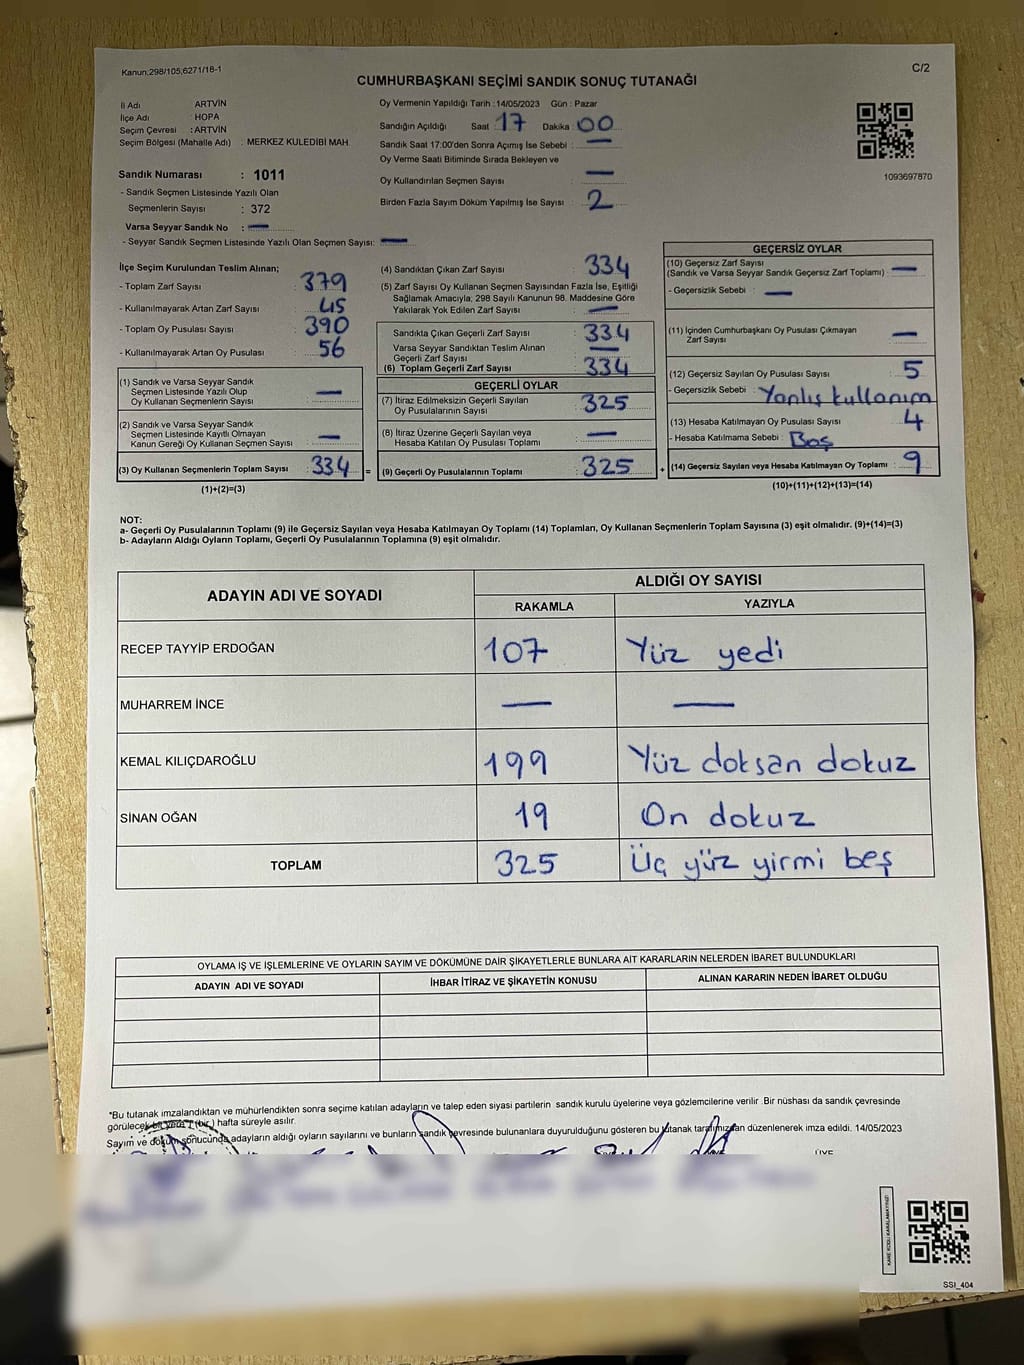 Kanun;298/105;6271/18-1
C/2
CUMHURBAŞKANI SEÇİMİ SANDIK SONUÇ TUTANAĞI
İl Adı ARTVİN
İlçe Adı HOPA
Seçim Çevresi : ARTVİN
Seçim Bölgesi (Mahalle Adı) : MERKEZ KULEDİBİ MAH.
Sandık Numarası : 1011
- Sandık Seçmen Listesinde Yazılı Olan
Seçmenlerin Sayısı : 372
Varsa Seyyar Sandık No : —
- Seyyar Sandık Seçmen Listesinde Yazılı Olan Seçmen Sayısı: —
Oy Vermenin Yapıldığı Tarih : 14/05/2023 Gün : Pazar
Sandığın Açıldığı Saat : 17 Dakika : 00
Sandık Saat 17:00'den Sonra Açımış İse Sebebi : —
Oy Verme Saati Bitiminde Sırada Bekleyen ve
Oy Kullandırılan Seçmen Sayısı : —
Birden Fazla Sayım Döküm Yapılmış İse Sayısı : 2
1093697870
İlçe Seçim Kurulundan Teslim Alınan;
- Toplam Zarf Sayısı : 379
- Kullanılmayarak Artan Zarf Sayısı : 45
- Toplam Oy Pusulası Sayısı : 390
- Kullanılmayarak Artan Oy Pusulası : 56
(1) Sandık ve Varsa Seyyar Sandık
Seçmen Listesinde Yazılı Olup
Oy Kullanan Seçmenlerin Sayısı : —
(2) Sandık ve Varsa Seyyar Sandık
Seçmen Listesinde Kayıtlı Olmayan
Kanun Gereği Oy Kullanan Seçmen Sayısı : —
(3) Oy Kullanan Seçmenlerin Toplam Sayısı : 334 =
(1)+(2)=(3)
(4) Sandıktan Çıkan Zarf Sayısı : 334
(5) Zarf Sayısı Oy Kullanan Seçmen Sayısından Fazla İse, Eşitliği
Sağlamak Amacıyla, 298 Sayılı Kanunun 98. Maddesine Göre
Yakılarak Yok Edilen Zarf Sayısı : —
Sandıkta Çıkan Geçerli Zarf Sayısı : 334
Varsa Seyyar Sandıktan Teslim Alınan
Geçerli Zarf Sayısı : —
(6) Toplam Geçerli Zarf Sayısı : 334
GEÇERLİ OYLAR
(7) İtiraz Edilmeksizin Geçerli Sayılan
Oy Pusulalarının Sayısı : 325
(8) İtiraz Üzerine Geçerli Sayılan veya
Hesaba Katılan Oy Pusulası Toplamı : —
(9) Geçerli Oy Pusulalarının Toplamı : 325 +
GEÇERSİZ OYLAR
(10) Geçersiz Zarf Sayısı
(Sandık ve Varsa Seyyar Sandık Geçersiz Zarf Toplamı) : —
- Geçersizlik Sebebi : —
(11) İçinden Cumhurbaşkanı Oy Pusulası Çıkmayan
Zarf Sayısı : —
(12) Geçersiz Sayılan Oy Pusulası Sayısı : 5
- Geçersizlik Sebebi : Yanlış kullanım
(13) Hesaba Katılmayan Oy Pusulası : 4
- Hesaba Katılmama Sebebi : Boş
(14) Geçersiz Sayılan veya Hesaba Katılmayan Oy Toplamı : 9
(10)+(11)+(12)+(13)=(14)
NOT:
a- Geçerli Oy Pusulalarının Toplamı (9) ile Geçersiz Sayılan veya Hesaba Katılmayan Oy Toplamı (14) Toplamları, Oy Kullanan Seçmenlerin Toplam Sayısına (3) eşit olmalıdır. (9)+(14)=(3)
b- Adayların Aldığı Oyların Toplamı, Geçerli Oy Pusulalarının Toplamına (9) eşit olmalıdır.
ADAYIN ADI VE SOYADI ALDIĞI OY SAYISI
RAKAMLA YAZIYLA
RECEP TAYYİP ERDOĞAN 107 Yüz yedi
MUHARREM İNCE — —
KEMAL KILIÇDAROĞLU 199 Yüz doksan dokuz
SİNAN OĞAN 19 On dokuz
TOPLAM 325 Üç yüz yirmi beş
OYLAMA İŞ VE İŞLEMLERİNE VE OYLARIN SAYIM VE DÖKÜMÜNE DAİR ŞİKAYETLERLE BUNLARA AİT KARARLARIN NELERDEN İBARET BULUNDUKLARI
ADAYIN ADI VE SOYADI İHBAR İTİRAZ VE ŞİKAYETİN KONUSU ALINAN KARARIN NEDEN İBARET OLDUĞU
*Bu tutanak imzalandıktan ve mühürlendikten sonra seçime katılan adayların ve talep eden siyasi partilerin sandık kurulu üyelerine veya gözlemcilerine verilir .Bir nüshası da sandık çevresinde
görülecek bir yere 1 (bir) hafta süreyle asılır.
Sayım ve döküm sonucunda adayların aldığı oyların sayılarını ve bunların sandık çevresinde bulunanlara duyurulduğunu gösteren bu tutanak tarafımızdan düzenlenerek imza edildi. 14/05/2023
ÜYE
KARE KODU KARALAMAYINIZ!
SSI_404